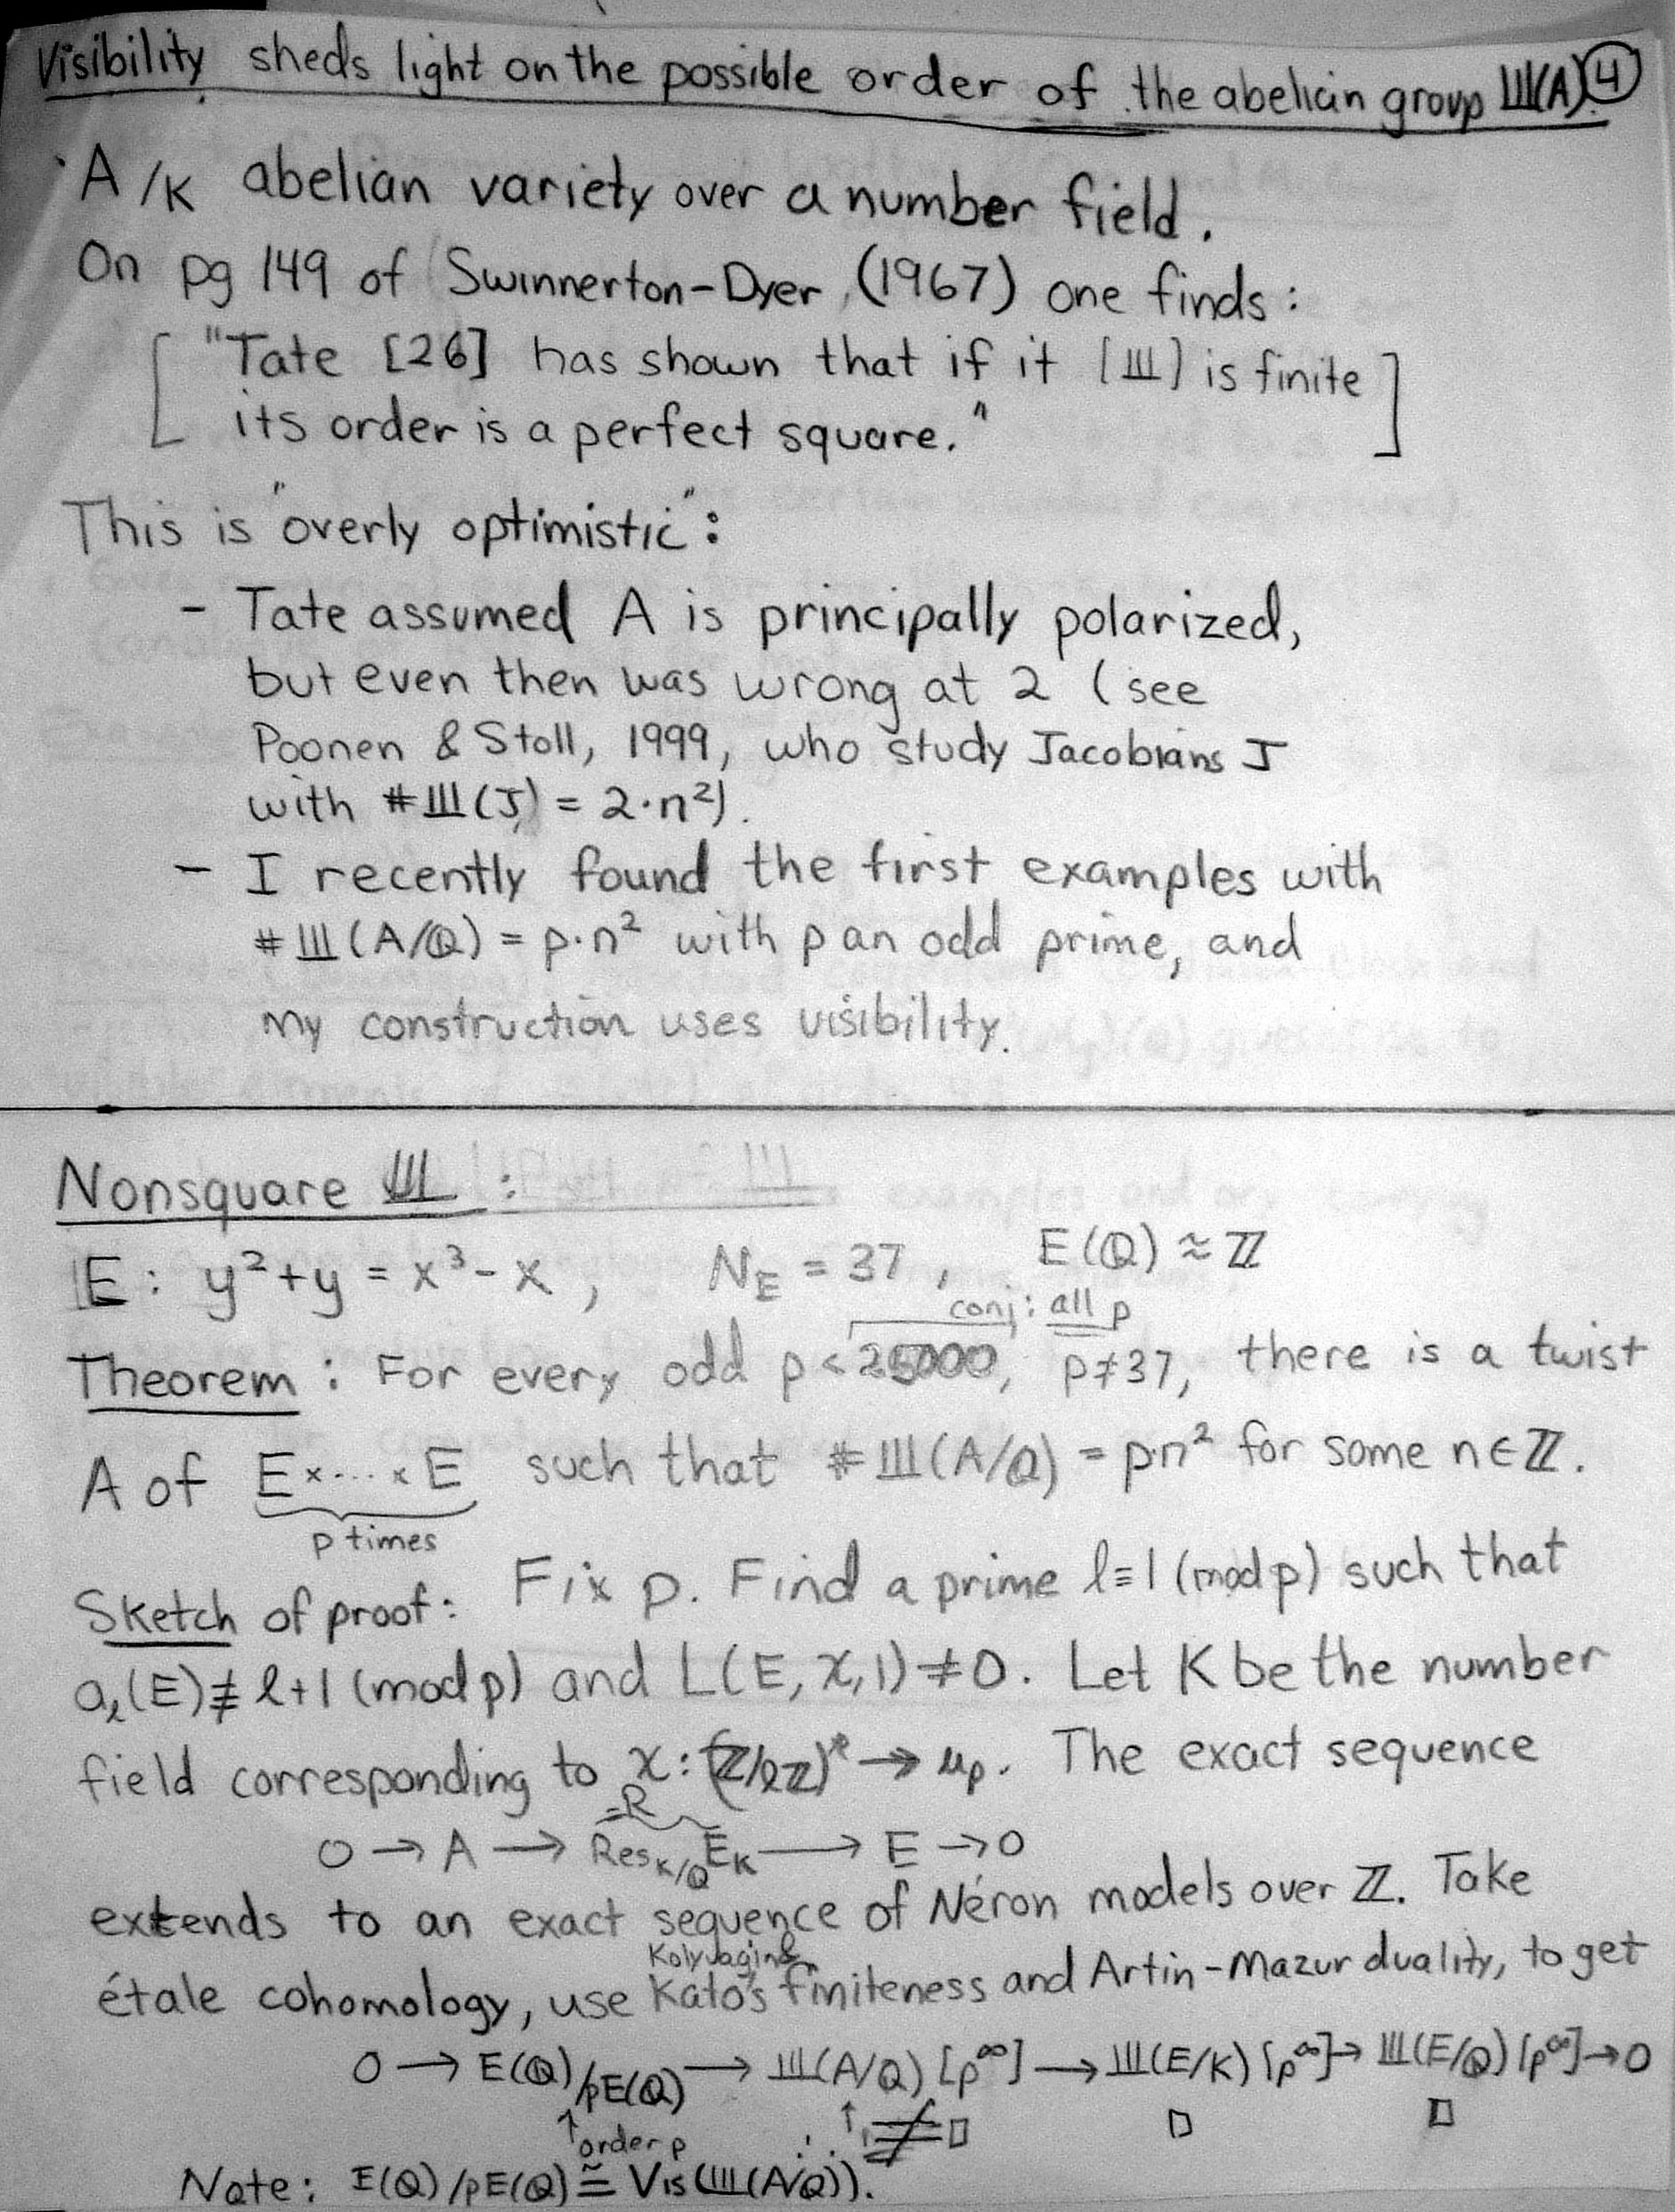 Visibility sheds light on the possible order of the abelian group Ш(A). 4
A/K abelian variety over a number field.
On pg 149 of Swinnerton-Dyer (1967) one finds:
"Tate [26] has shown that if it [Ш] is finite
its order is a perfect square."
This is "overly optimistic":
- Tate assumed A is principally polarized,
but even then was wrong at 2 (see
Poonen & Stoll, 1999, who study Jacobians J
with #Ш(J) = 2·n²).
- I recently found the first examples with
#Ш(A/ℚ) = p·n² with p an odd prime, and
my construction uses visibility.
Nonsquare Ш:
E: y²+y = x³-x, N_E = 37, E(ℚ) ≈ ℤ
conj: all p
Theorem: For every odd p < 25000, p≠37, there is a twist
A of E×···×E such that #Ш(A/ℚ) = p·n² for some n∈ℤ.
p times
Sketch of proof: Fix p. Find a prime ℓ≡1 (mod p) such that
a_ℓ(E)≢ℓ+1 (mod p) and L(E,χ,1)≠0. Let K be the number
field corresponding to χ: (ℤ/ℓℤ)* → μ_p. The exact sequence
=R
0 → A → Res_{K/ℚ} E_K → E → 0
extends to an exact sequence of Néron models over ℤ. Take
Kolyvagin &
étale cohomology, use Kato's finiteness and Artin-Mazur duality, to get
0 → E(ℚ)/pE(ℚ) → Ш(A/ℚ)[p^∞] → Ш(E/K)[p^∞] → Ш(E/ℚ)[p^∞] → 0
↑ order p ↑ ∴ ≠□ □ □
Note: E(ℚ)/pE(ℚ) ≅ Vis(Ш(A/ℚ)).